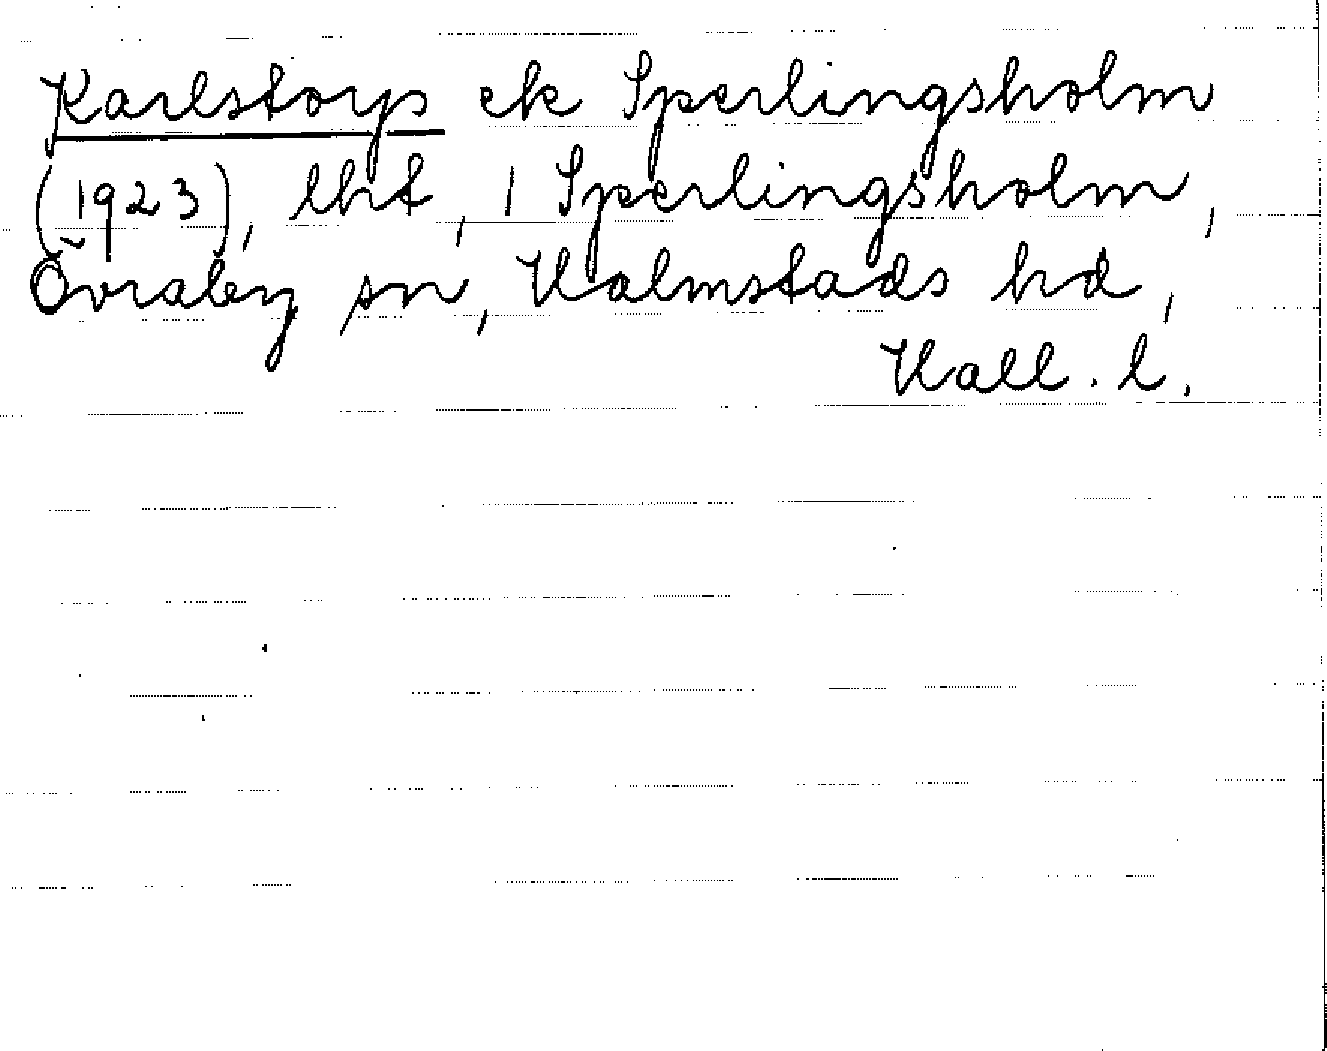 Karlstorps ek Sperlingsholm
(1923), lht, 1 Sperlingsholm,
Övraby sn, Halmstads hd,
Hall. l.